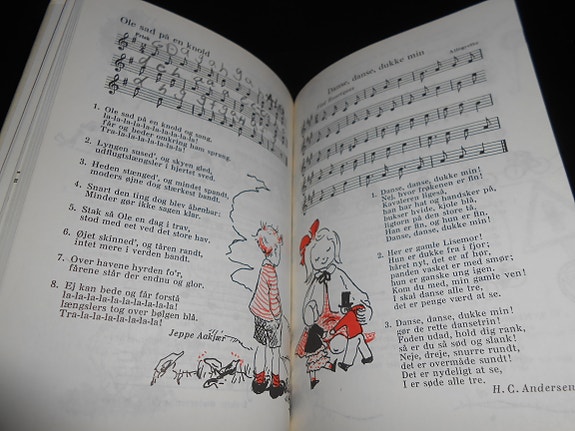 Ole sad på en knold
1. Ole sad på en knold og sang,
la-la-la-la-la-la-la-la-la!
får og beder omkring ham sprang,
Tra-la-la-la-la-la-la-la!
2. Lyngen sused', og skyen gled,
udflugtslængsler i hjertet sved.
3. Heden stænged', og mindet spandt,
moders øjne dog stærkest bandt.
4. Snart den ting dog blev åbenbar:
Minder gør ikke sagen klar.
5. Stak så Ole en dag i trav,
stod med eet ved det store hav.
6. Øjet skinned', og tåren randt,
intet mere i verden bandt.
7. Over havene hyrden fo'r,
fårene står der endnu og glor.
8. Ej kan bede og får forstå
la-la-la-la-la-la-la-la-la!
længslers tog over bølgen blå,
Tra-la-la-la-la-la-la-la!
Jeppe Aakjær
Danse, danse, dukke min
1. Danse, danse, dukke min!
Nej, hvor frøkenen er fin!
Kavaleren ligeså,
han har hat og handsker på,
bukser hvide, kjole blå,
ligtorn på den store tå.
Han er fin, og hun er fin,
Danse, danse, dukke min!
2. Her er gamle Lisemor!
Hun er dukke fra i fjor;
håret nyt, det er af hør,
panden vasket er med smør;
hun er ganske ung igen.
Kom du med, min gamle ven!
I skal danse alle tre,
det er penge værd at se.
3. Danse, danse, dukke min!
gør de rette dansetrin!
Foden udad, hold dig rank,
så er du så sød og slank!
Neje, dreje, snurre rundt,
det er overmåde sundt!
Det er nydeligt at se,
I er søde alle tre.
H. C. Andersen